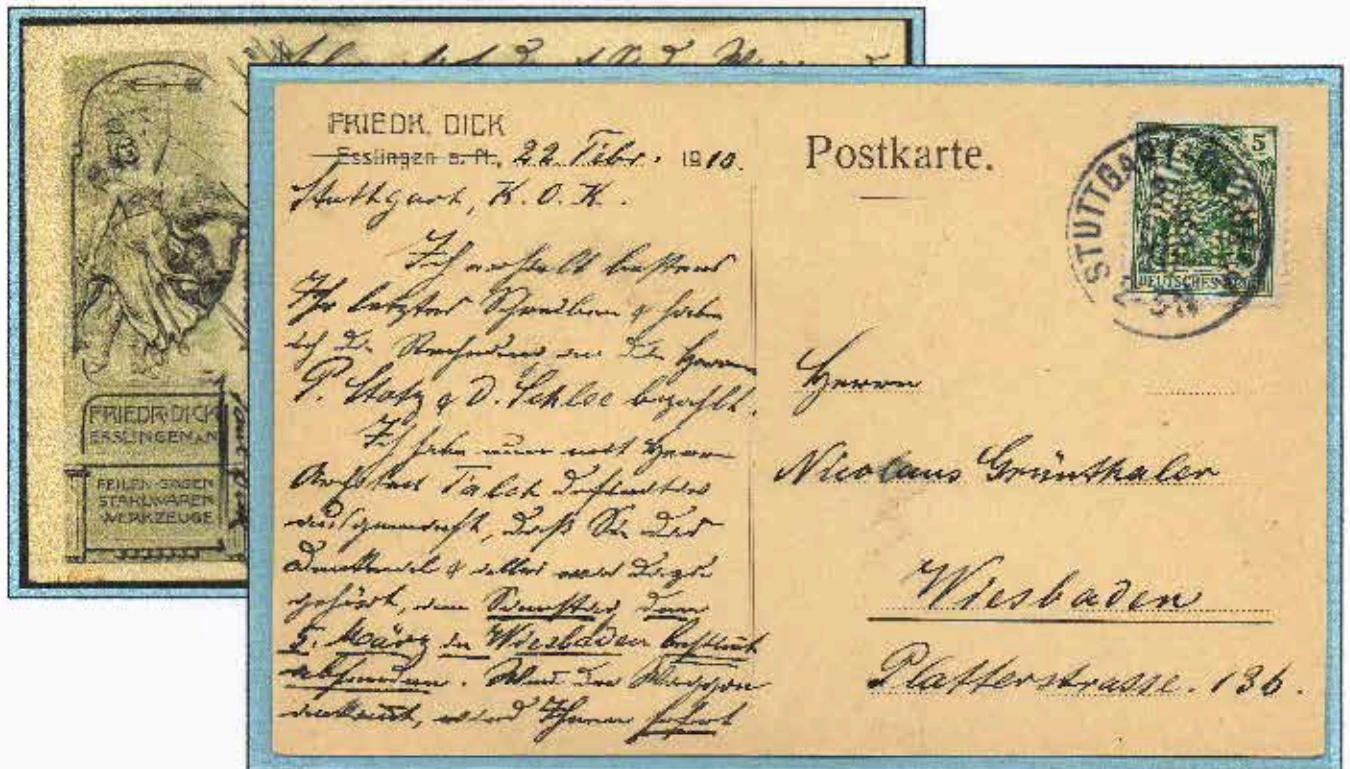 FRIEDR. DICK
ESSLINGEN A.N.
FEILEN-SÄGEN
STAHLWAREN
WERKZEUGE
FRIEDR. DICK
Esslingen a. N., 22. Febr. 1910.
Stuttgart, K.O.K.
Ich erhielt bestens
Ihr letztes Schreiben & habe
ich die Rechnung an die Herren
P. Stotz & D. Schlee bezahlt.
Ich habe nun mit Herrn
Falch definitiv
ausgemacht, daß Sie das
Denkmal & alles was dazu
gehört, am Samstag den
5. März in Wiesbaden bestimmt
absenden. Wenn der Waggon
ankommt, wird Ihnen sofort
Postkarte.
STUTTGART
5
DEUTSCHES REICH
Herrn
Nicolaus Grünthaler
Wiesbaden
Platterstrasse. 136.